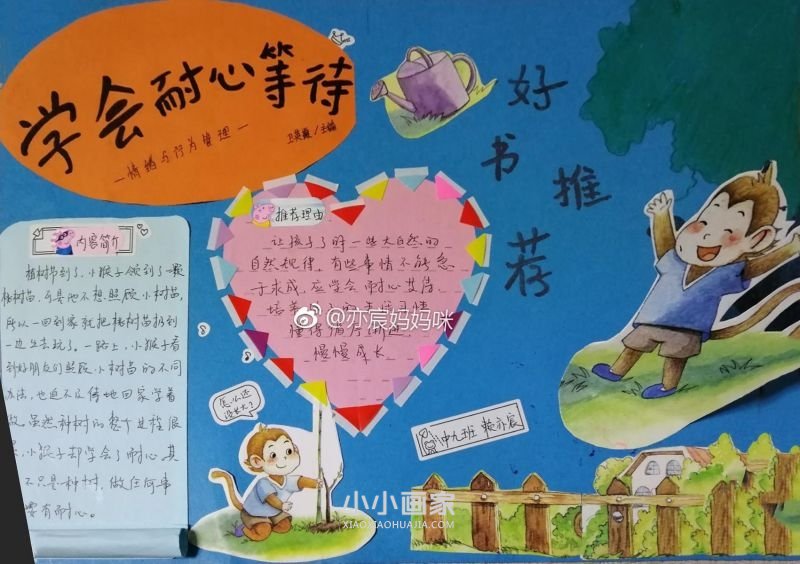 学会耐心等待
—情绪与行为管理—
卫英霞/主编
好书推荐
内容简介
植树节到了,小猴子领到了一颗
树苗,可是他不想照顾小树苗,
所以一回到家就把树苗扔到
一边出去玩了。一路上,小猴子看
到好朋友们照顾小树苗的不同
办法,也迫不及待地回家学着
做。虽然种树的整个过程很
小猴子却学会了耐心,其
不只是种树,做任何事
要有耐心。
推荐理由
让孩子了解一些大自然的
自然规律,有些事情不能急
于求成,应学会耐心等待。
培养
懂得循序渐进
慢慢成长
@亦辰妈妈咪
怎么还
没长大?
中九班 赖亦宸
小小画家
XIAOXIAOHUAJIA.COM